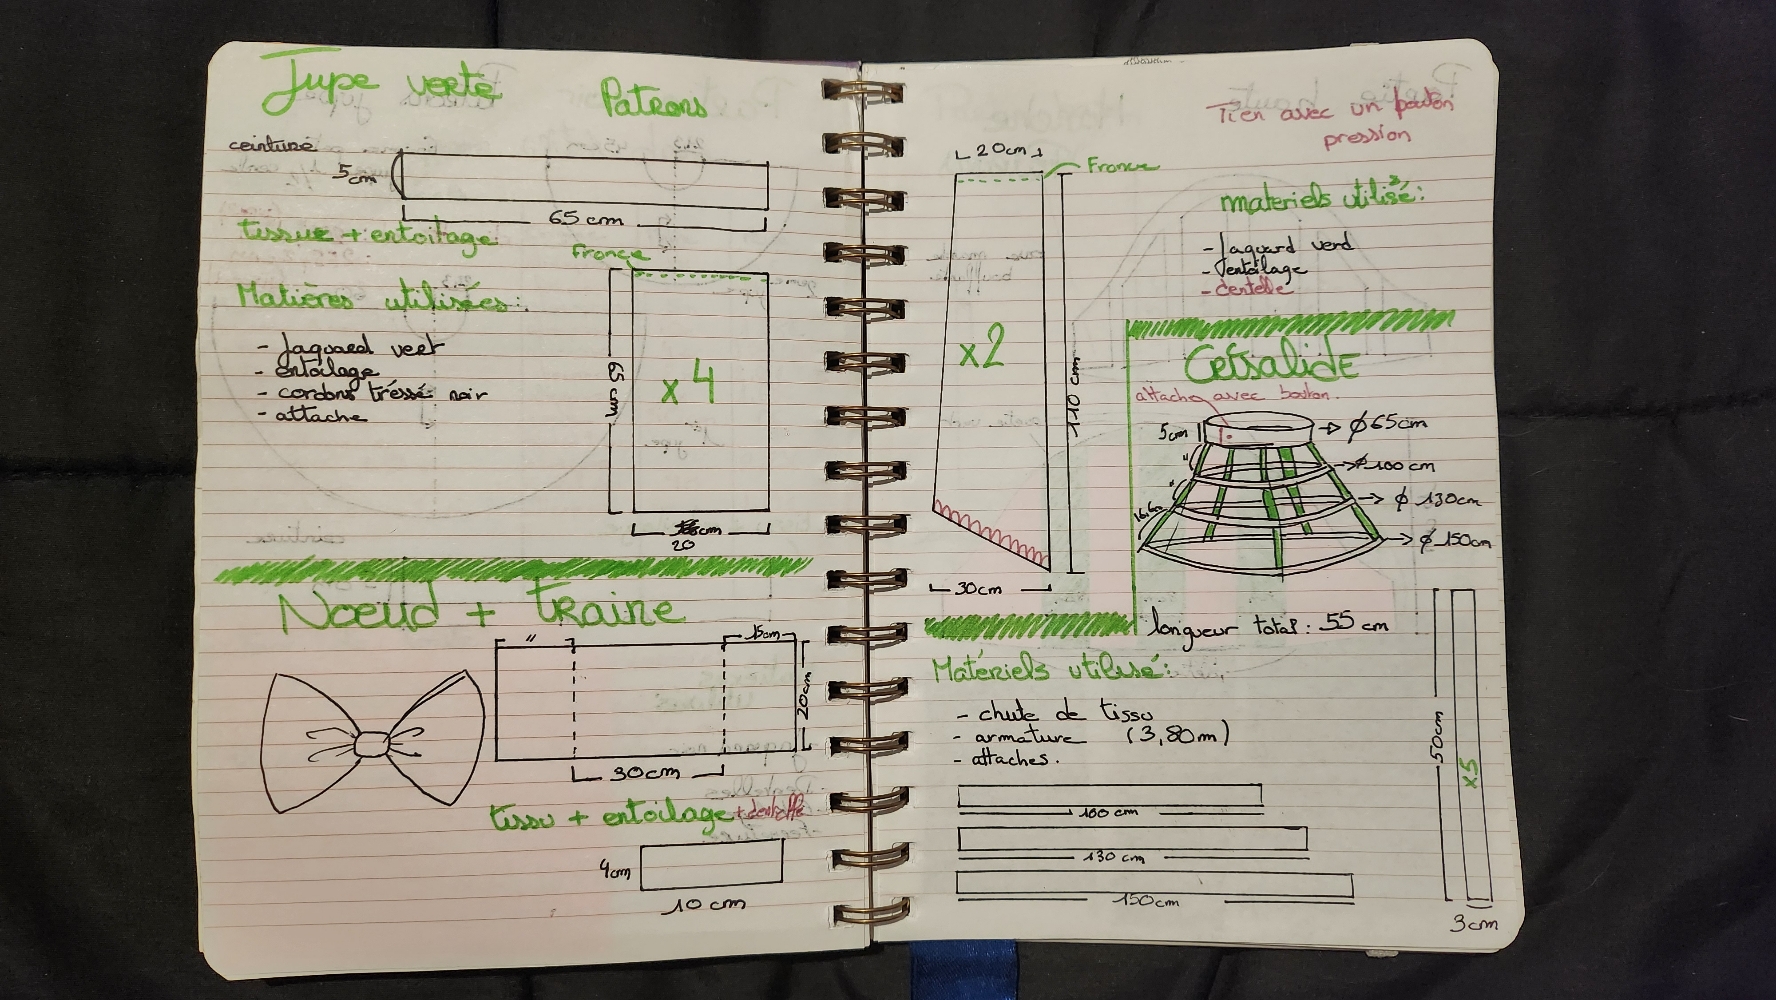 Jupe verte
Patrons
ceinture
5cm
65 cm
tissue + entoilage
Fronce
Matières utilisées:
- Jaquard vert
- entoilage
- cordons tréssé noir
- attache
65 cm
x 4
20
Noeud + traine
"
15cm
20cm
30cm
tissu + entoilage
4cm
10 cm
Tien avec un bouton
pression
20cm
Fronce
x2
110 cm
30cm
materiels utilisé:
- Jaquard verd
- entoilage
- dentelle
attache avec bouton.
5cm
ϕ 65cm
"
ϕ 100 cm
"
ϕ 130cm
16.6cm
ϕ 150cm
longueur total: 55 cm
Matériels utilisé:
- chute de tissu
- armature (3,80m)
- attaches.
100 cm
130 cm
150cm
50cm
x5
3cm